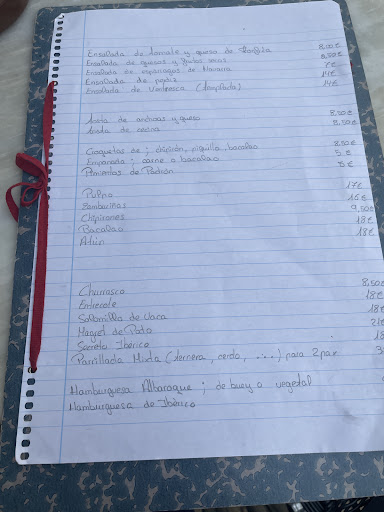 Ensalada de tomate y queso de 8,00€
Ensalada de quesos y frutos secos 8,50€
Ensalada de espárragos de Navarra 7€
Ensalada de perdiz 14€
Ensalada de Ventresca (templada) 14€
de anchoas y queso 8,50€
de cecina 8,50€
Croquetas de ; chipirón, piquillo, bacalao 8,50€
Empanada ; carne o bacalao 5€
Pimientos de Padrón
Pulpo 17€
Zamburiñas 15€
Chipirones 9,50€
Bacalao 18€
Atún 18€
Churrasco 8,50
Entrecote 18€
Solomillo de Vaca 18€
Magret de Pato
Secreto Ibérico 18
Parrillada Mixta (ternera, cerdo, ....) para 2 pax 3
Hamburguesa Albaroque ; de buey o vegetal
Hamburguesa de Ibérico